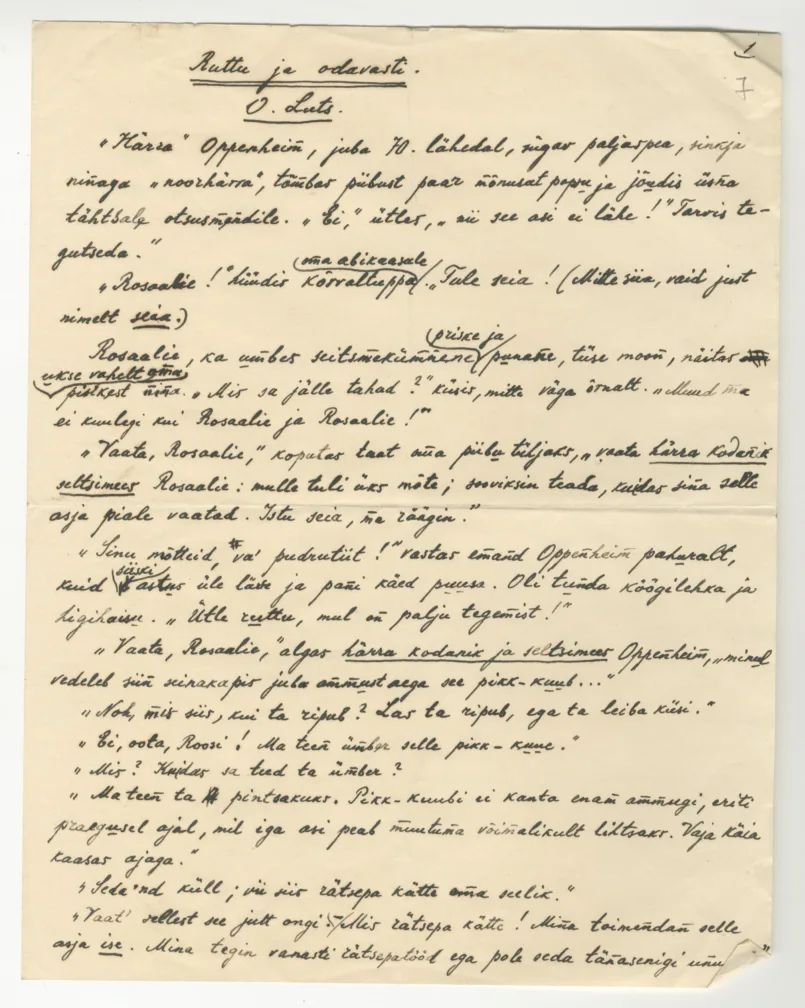 1
7
Ruttu ja odavasti.
O. Luts.
"Härra" Oppenheim, juba 70. lähedal, sügav paljaspea, sinkja
ninaga "noorhärra", tõmbas piibust paar mõnusat popsu ja jõudis üsna
tähtsale otsusmendile. "Ei," ütles, "nii see asi ei lähe!" Tarvis te-
gutseda."
oma abikaasale
"Rosaalie!" hüüdis kõrvaltuppa. "Tule seia! (Mitte siia, vaid just
nimelt seia.)
priske ja
Rosaalie, ka umbes seitsmekümnene punane, tüse moor, näitas
ukse vahelt oma
pisikest nina. "Mis sa jälle tahad?" küsis, mitte väga õrnalt. "Muud ma
ei kuulegi kui Rosaalie ja Rosaalie!"
"Vaata, Rosaalie," koputas taat oma piibu tühjaks, "vaata härra kodanik
seltsimees Rosaalie: mulle tuli üks mõte; sooviksin teada, kuidas sina selle
asja piale vaatad. Istu seia, ma räägin."
"Sinu mõtteid, va' pudrutiit!" vastas emand Oppenheim pahuralt,
siiski
kuid astus üle läve ja pani käed puusa. Oli tunda köögilehka ja
higihaisu. "Ütle ruttu, mul on palju tegemist!"
"Vaata, Rosaalie," algas härra kodanik ja seltsimees Oppenheim, "minul
vedeleb siin seinakapis juba ammust aega see pikk-kuub..."
"Noh, mis siis, kui ta ripub? Las ta ripub, ega ta leiba küsi."
"Ei, oota, Roosi! Ma teen ümber selle pikk-kuue."
"Mis? Kuidas sa teed ta ümber?
"Ma teen ta pintsakuks. Pikk-kuubi ei kanta enam ammugi, eriti
praegusel ajal, mil iga asi peab muutuma võimalikult lihtsaks. Vaja käia
kaasas ajaga."
"Seda'nd küll; vii siis rätsepa kätte oma seelik."
"Vaat' sellest see jutt ongi: Mis rätsepa kätte! Mina toimendan selle
asja ise. Mina tegin vanasti rätsepatööd ega pole seda tänasenigi unu